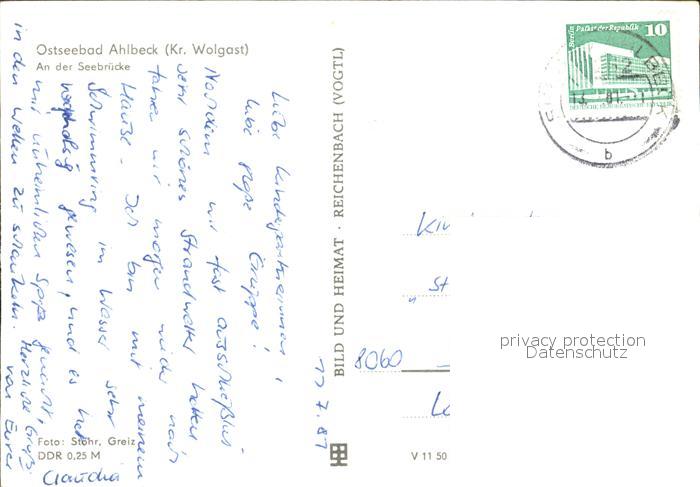 Ostseebad Ahlbeck (Kr. Wolgast)
An der Seebrücke
Liebe Kindergärtnerinnen,
liebe große Gruppe!
Nachdem wir fast ausschließlich
sehr schönes Strandwetter hatten
fahren wir morgen wieder nach
Hause. Ich bin mit meinem
Schwimmring im Wasser sehr
gewesen, und es hat
mir unheimlichen Spaß gemacht,
in den Wellen zu schaukeln. Herzliche Grüße
von Eurer
Claudia
Foto: Stöhr, Greiz
DDR 0,25 M
BILD UND HEIMAT · REICHENBACH (VOGTL)
V 11 50
Berlin Palast der Republik 10
DEUTSCHE DEMOKRATISCHE REPUBLIK
b
Kin
St
8060
privacy protection
Datenschutz